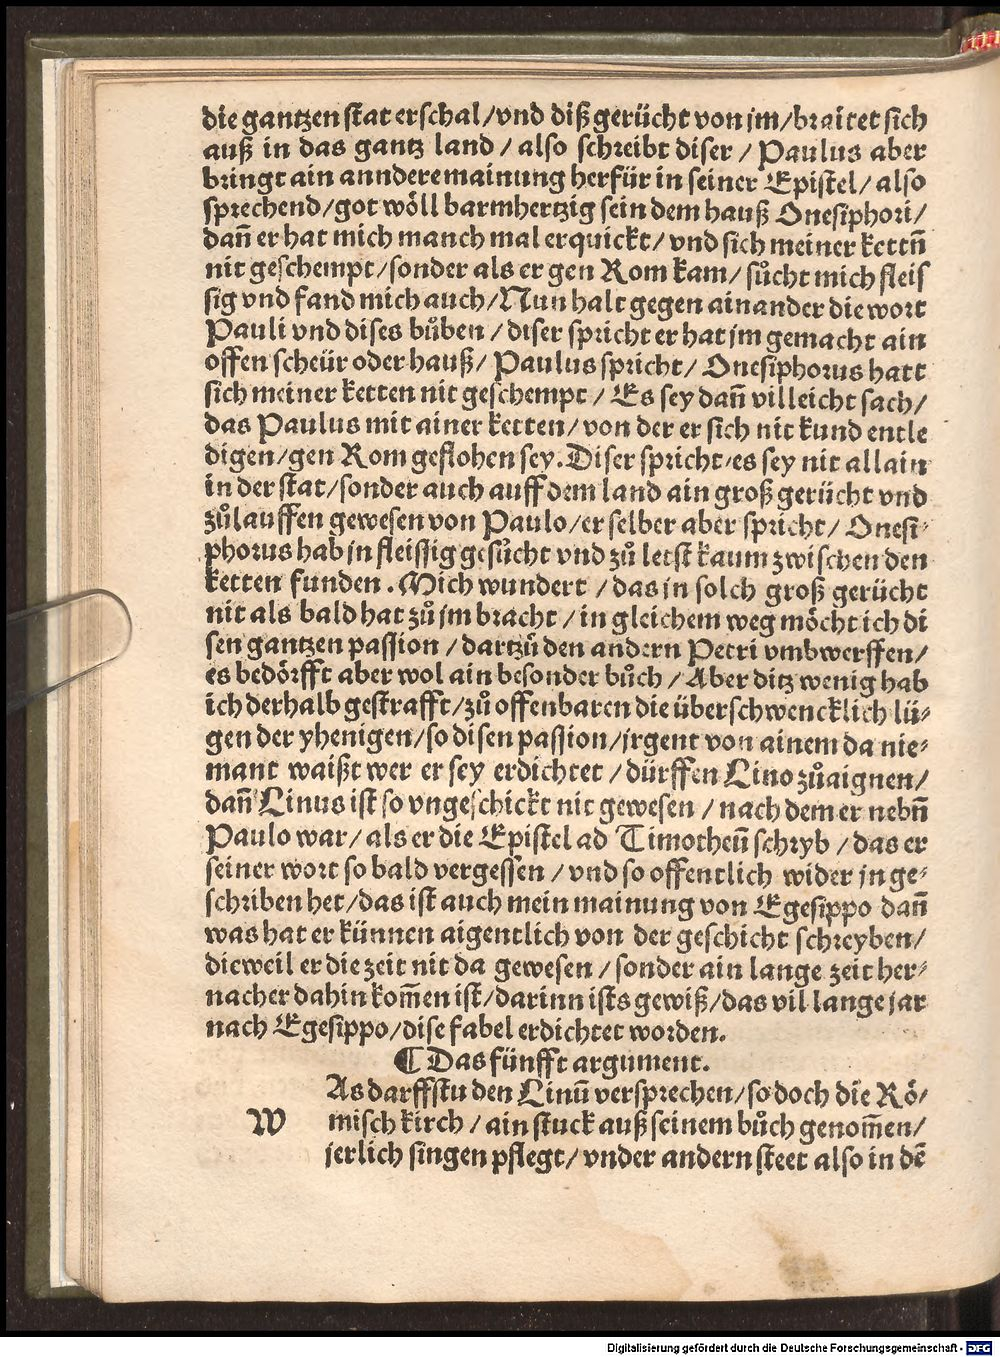 die gantzen stat erschal/vnd diß gerücht von jm/braitet sich
auß in das gantz land / also schreibt diser / Paulus aber
bringt ain anndere mainung herfür in seiner Epistel/ also
sprechend/got wöll barmhertzig sein dem hauß Onesiphori/
dañ er hat mich manch mal erquickt/ vnd sich meiner kettñ
nit geschempt/sonder als er gen Rom kam/ sůcht mich fleis
sig vnd fand mich auch/Nun halt gegen ainander die wort
Pauli vnd dises bůben / diser spricht er hat jm gemacht ain
offen scheür oder hauß/ Paulus spricht/ Onesiphorus hatt
sich meiner ketten nit geschempt / Es sey dañ villeicht sach/
das Paulus mit ainer ketten/ von der er sich nit kund entle
digen/gen Rom geflohen sey. Diser spricht/es sey nit allain
in der stat/sonder auch auff dem land ain groß gerücht vnd
zůlauffen gewesen von Paulo/er selber aber spricht/ Onesi⸗
phorus hab jn fleissig gesůcht vnd zů letst kaum zwischen den
ketten funden. Mich wundert / das jn solch groß gerücht
nit als bald hat zů jm bracht / in gleichem weg möcht ich di
sen gantzen passion / dartzů den andern Petri vmbwerffen/
es bedörfft aber wol ain besonder bůch / Aber ditz wenig hab
ich derhalb gestrafft/zů offenbaren die überschwencklich lü⸗
gen der yhenigen/so disen passion/jrgent von ainem da nie⸗
mant waißt wer er sey erdichtet / dürffen Lino zůaignen/
dañ Linus ist so vngeschickt nit gewesen / nach dem er nebñ
Paulo war/ als er die Epistel ad Timotheũ schryb / das er
seiner wort so bald vergessen / vnd so offentlich wider jn ge⸗
schriben het/das ist auch mein mainung von Egesippo dañ
was hat er künnen aigentlich von der geschicht schreyben/
dieweil er die zeit nit da gewesen / sonder ain lange zeit her⸗
nacher dahin kom̃en ist/darinn ists gewiß/das vil lange jar
nach Egesippo/dise fabel erdichtet worden.
¶ Das fünfft argument.
WAs darffstu den Linũ versprechen/so doch die Rö⸗
misch kirch / ain stuck auß seinem bůch genom̃en/
jerlich singen pflegt/ vnder andern steet also in dẽ
Digitalisierung gefördert durch die Deutsche Forschungsgemeinschaft - DFG